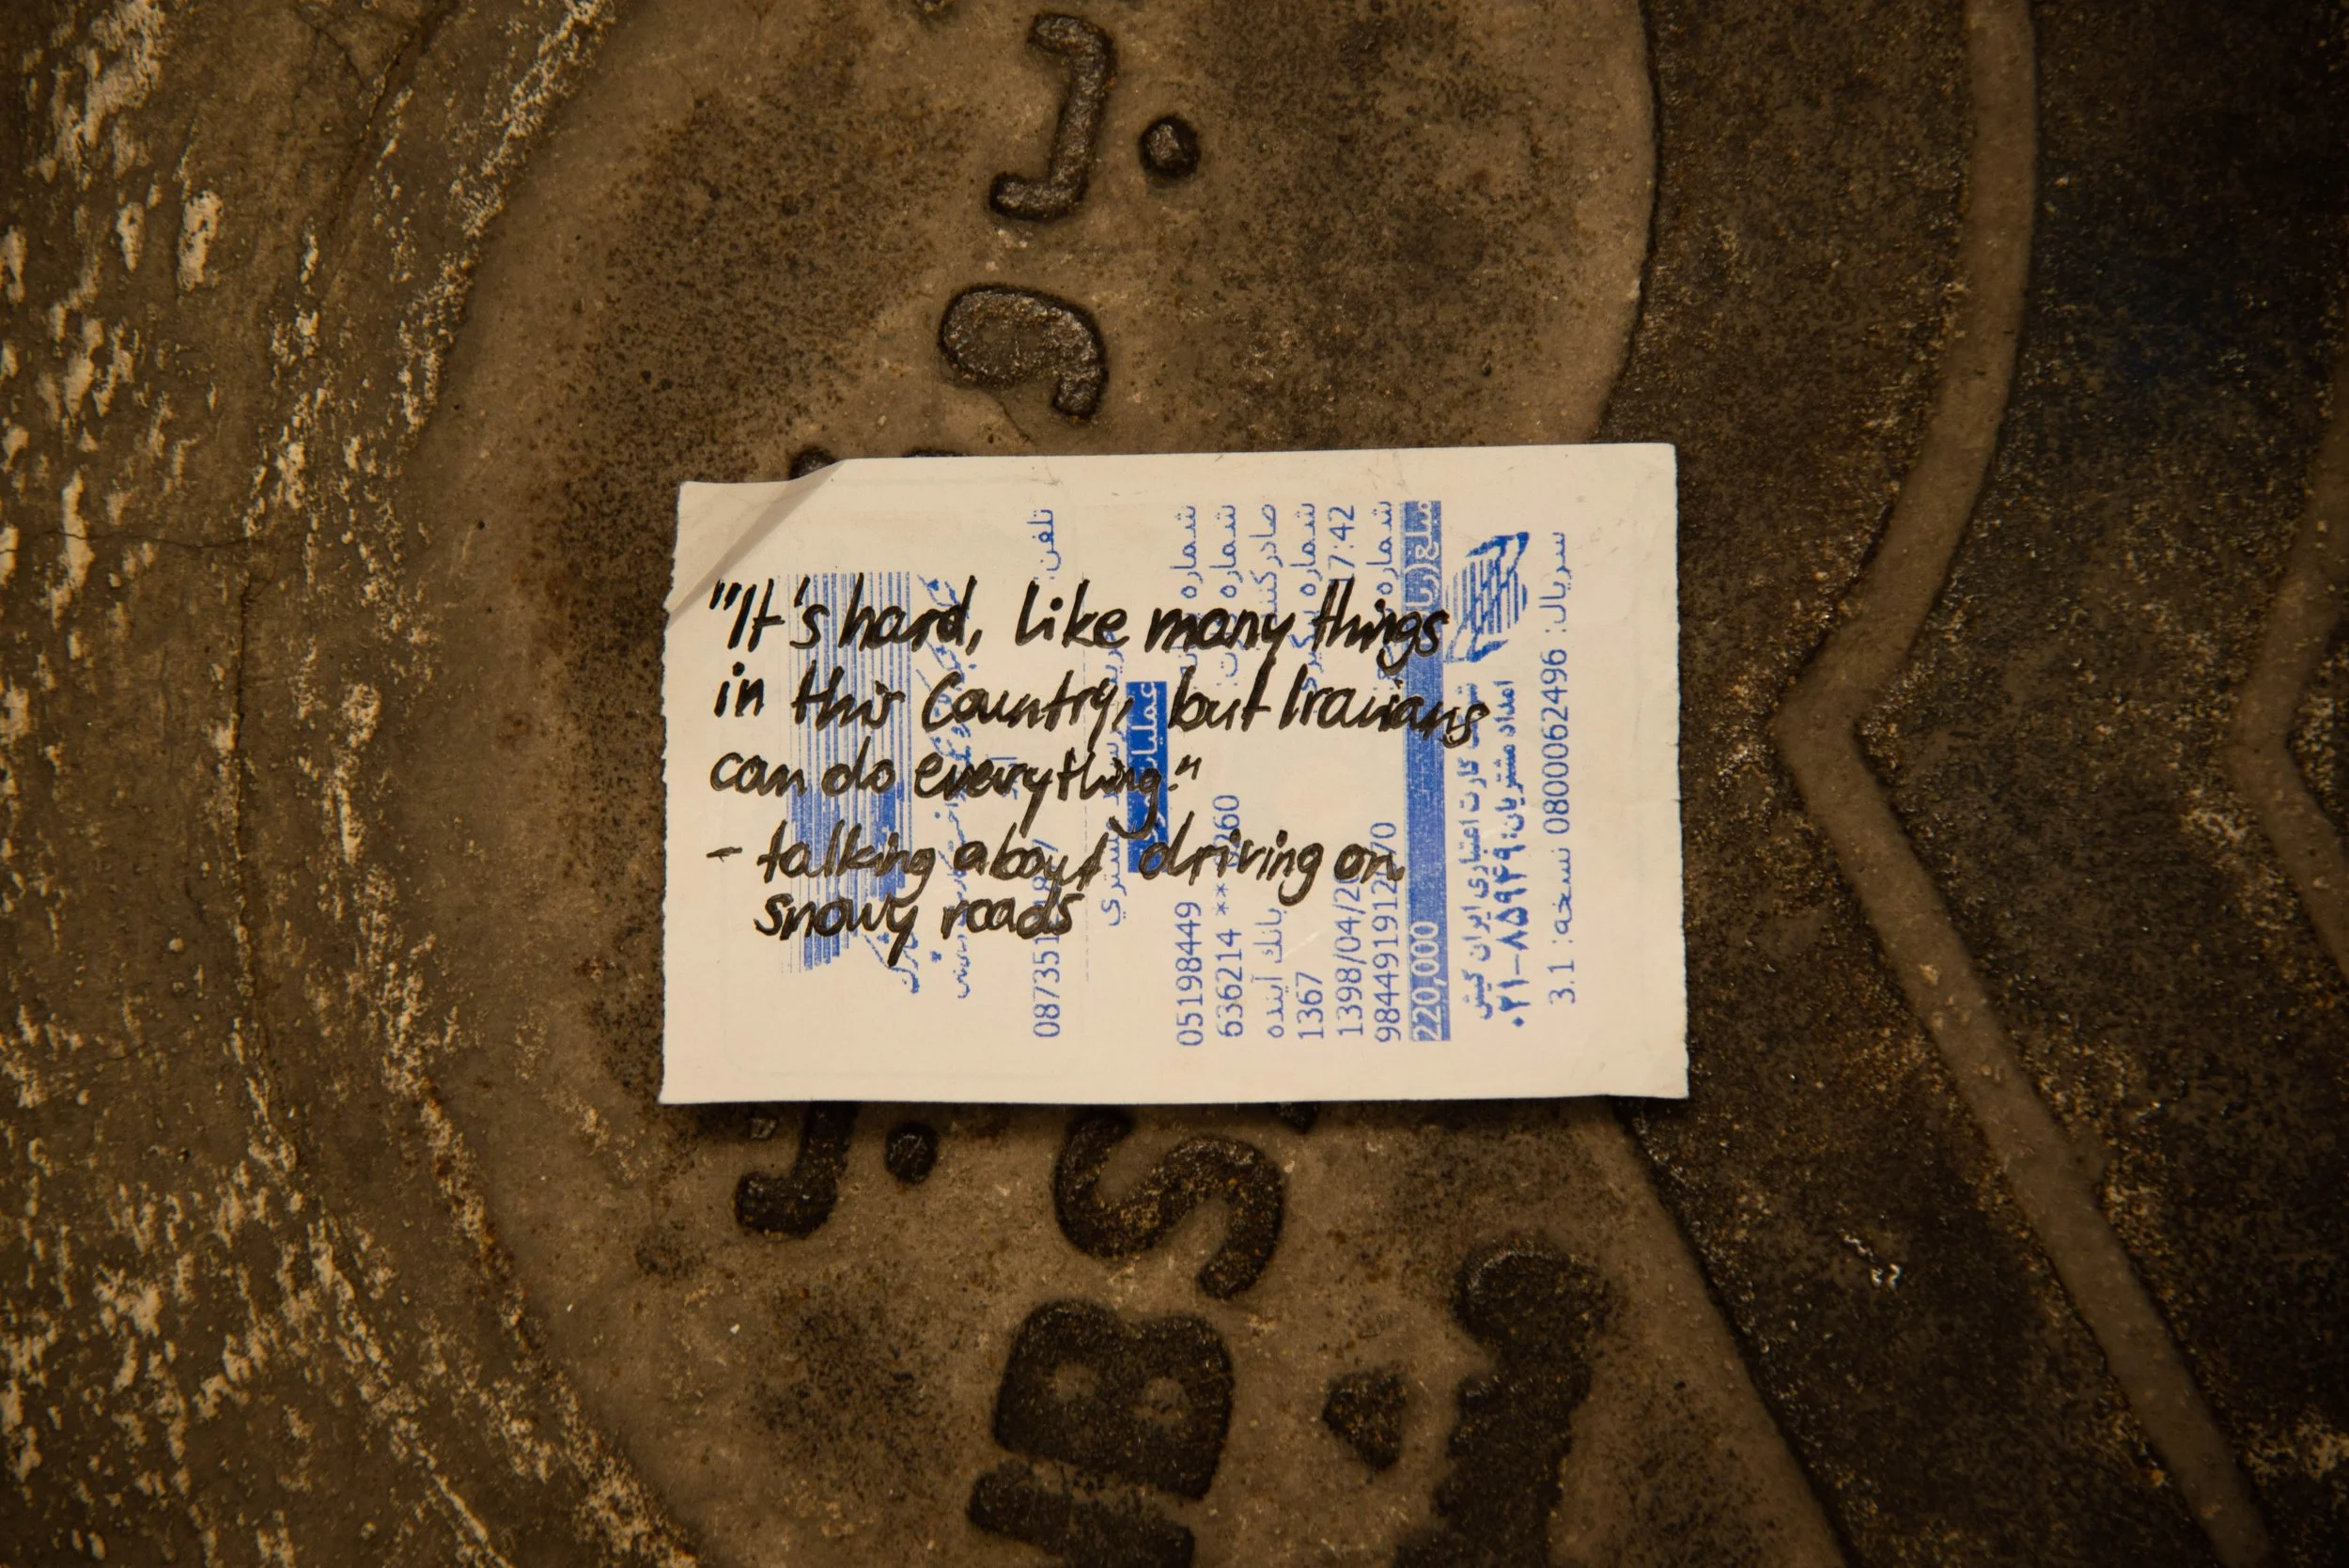 "It's hard, like many things
in this Country, but Iranians
can do everything."
- talking about driving on
snowy roads
تلفن:
شماره 05198449
شماره 636214 **
صادرکننده بانك آینده
شماره 1367
17:42 1398/04/2
شماره
220,000
شرکت کارت اعتباری ایران کیش
امداد مشتریان: ۸۵۹۴۹-۰۲۱
سریال: 0800062496 نسخه: 3.1
J.
J.
S
B